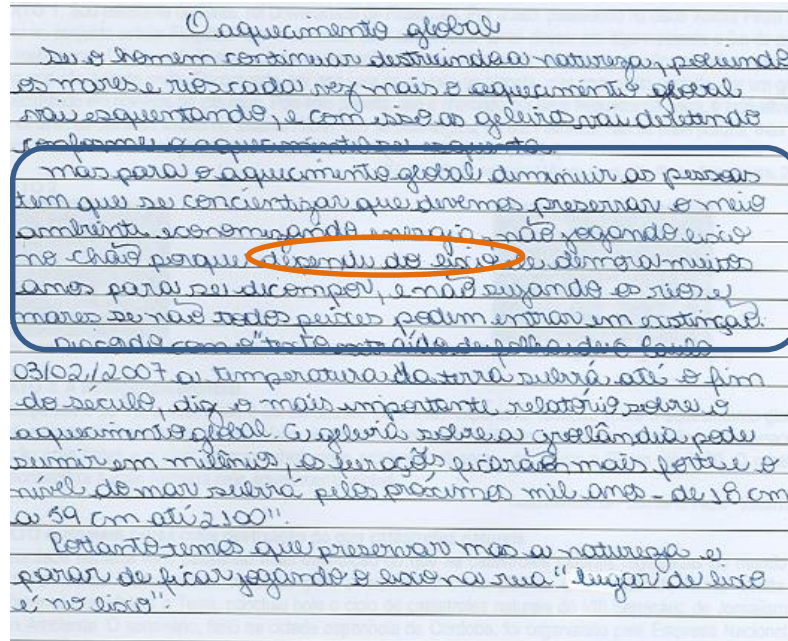 O aquecimento global
Se o homem continuar destruindo a natureza, poluindo
os mares e rios cada vez mais o aquecimento global
vai esquentando, e com isso as geleiras vai deretendo
conforme o aquecimento se esquenta.
mas para o aquecimento global deminuir as pessoas
tem que se concientizar que devemos preservar o meio
ambiente economizando energia, não jogando lixo
no chão porque depende do lixo ele demora muitos
anos para se decompor, e não sujando os rios e
mares se não todos peixes podem entrar em extinção.
com o "texto extraído de folha de S. Paulo
03/02/2007 a temperatura da terra subirá até o fim
do século, diz o mais importante relatório sobre o
aquecimento global. A geleira sobre a grolândia pode
sumir em milênios, os furacões ficarão mais forte e o
nível do mar subirá pelos próximos mil anos - de 18 cm
a 59 cm até 2100".
Portanto temos que preservar mas a natureza e
parar de ficar jogando o lixo na rua "lugar de lixo
é no lixo"